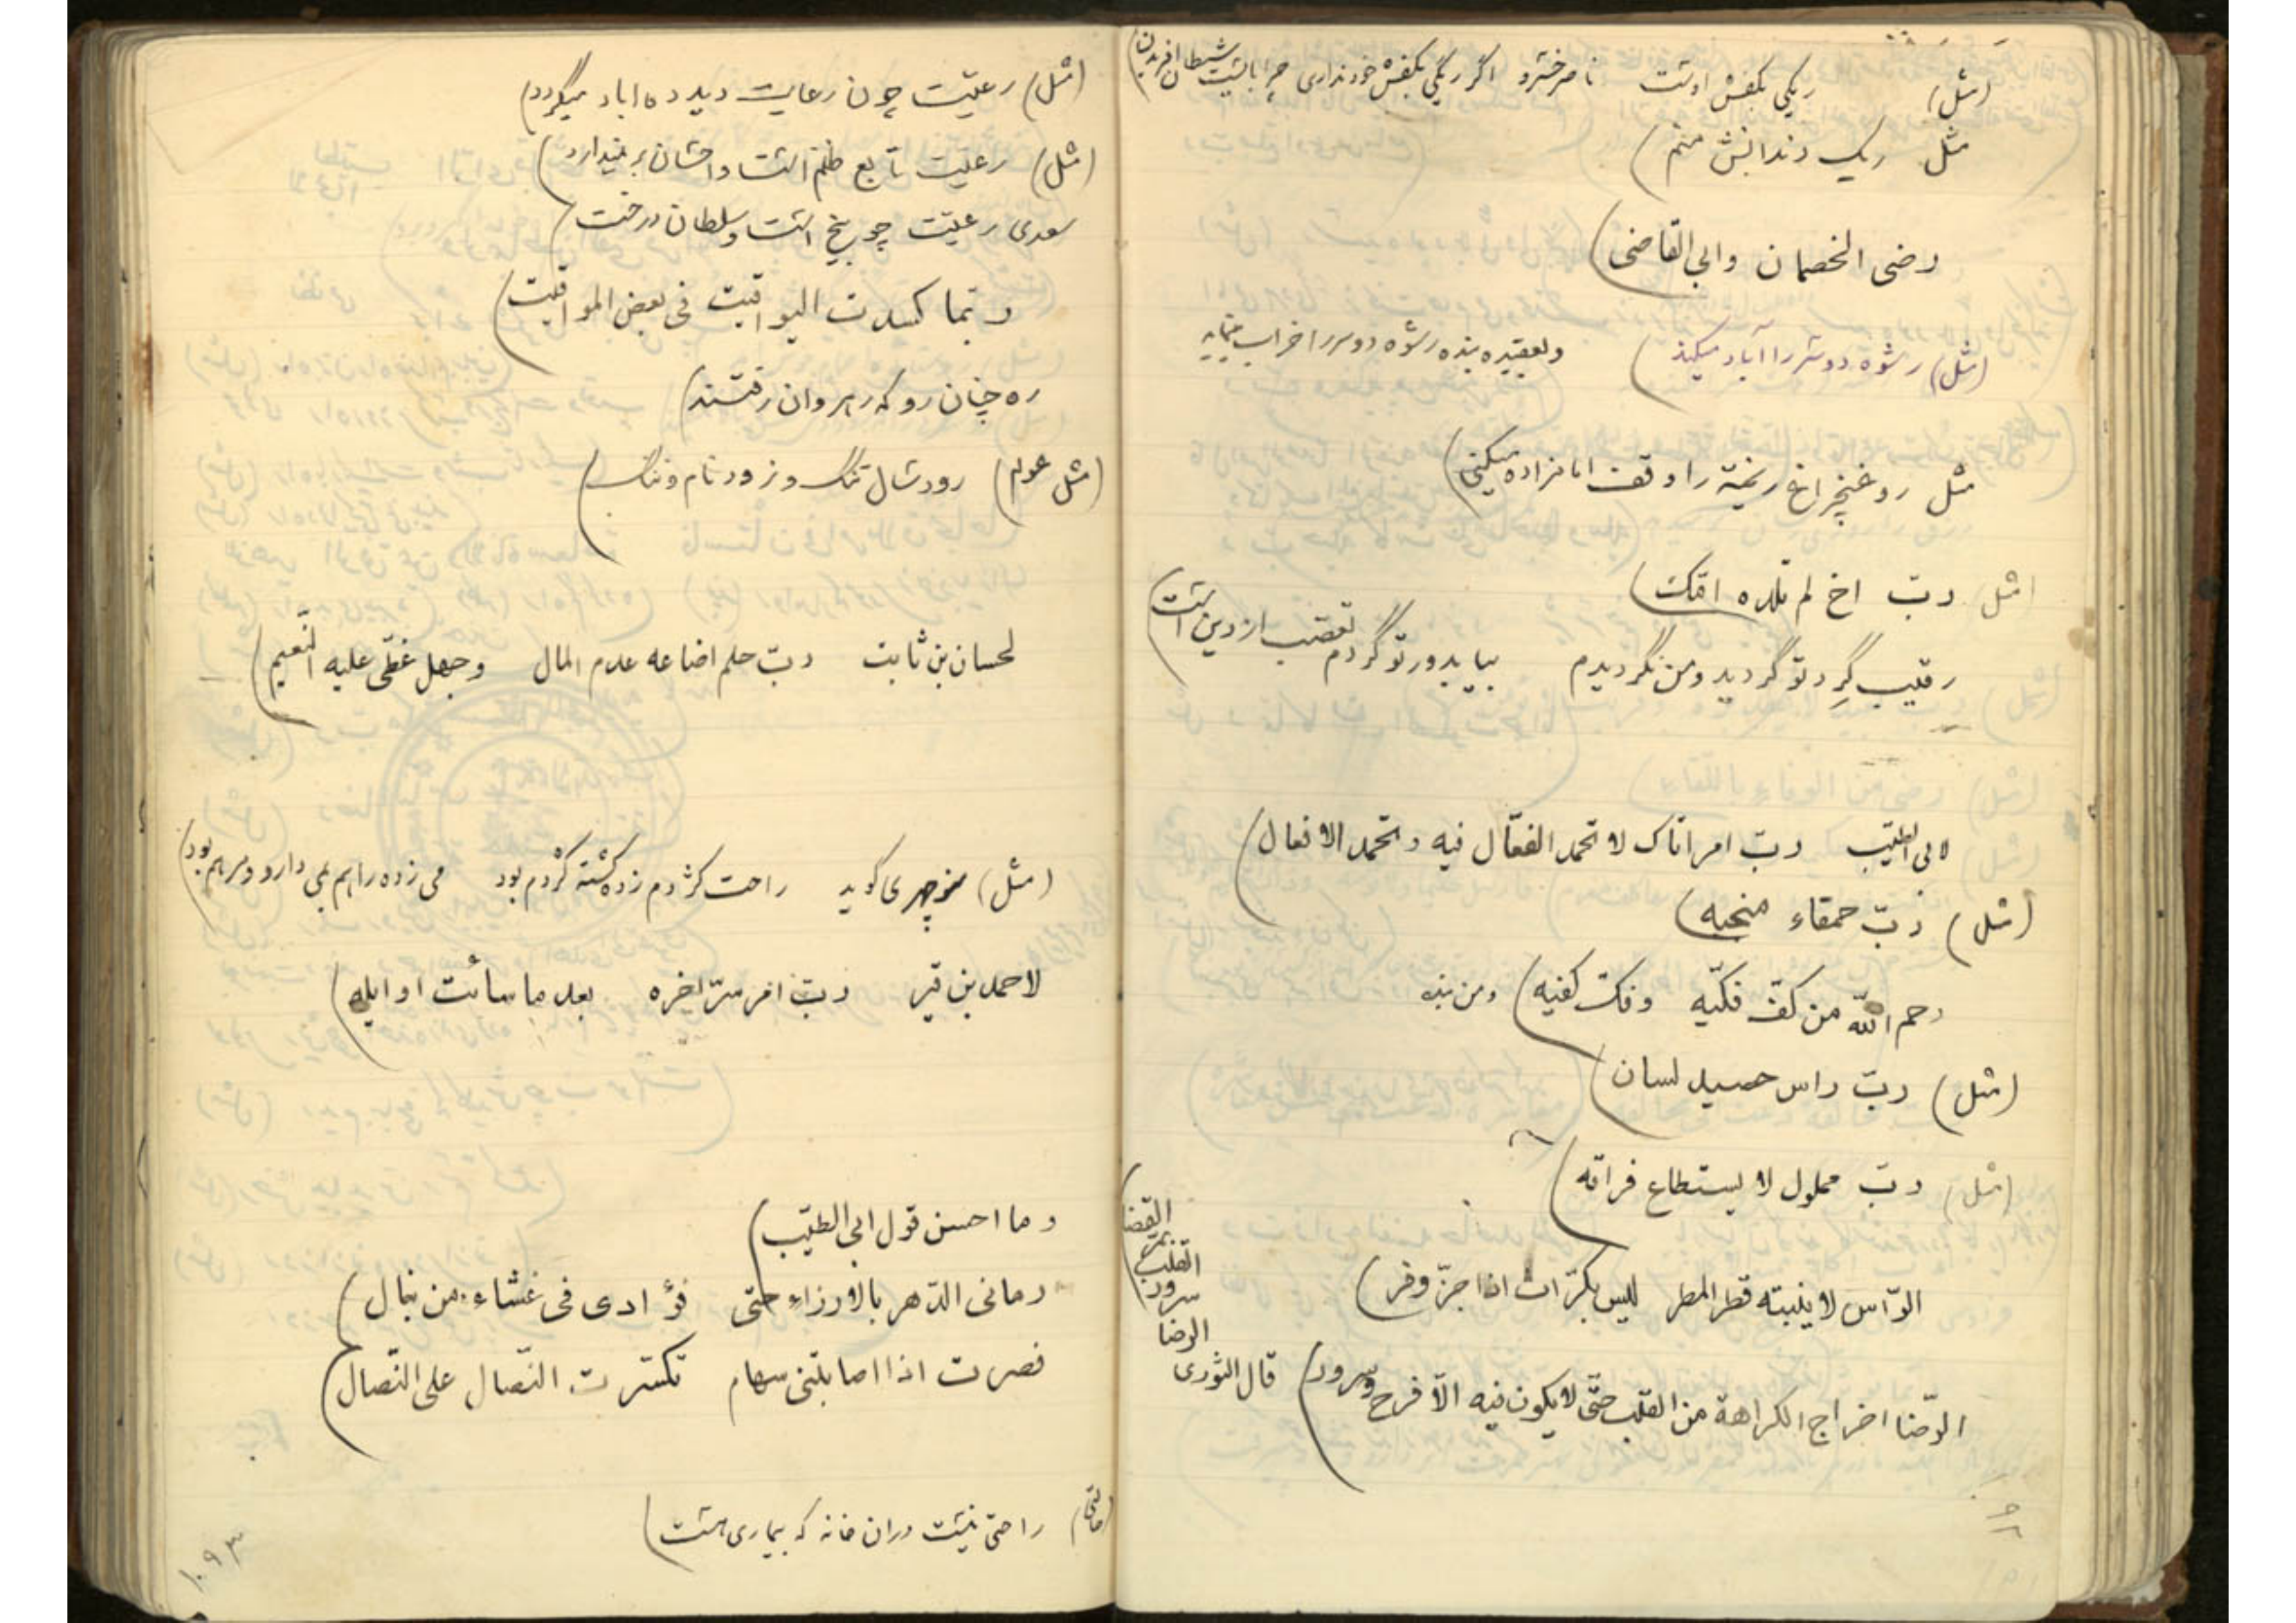 (مثل) ریگی بکفش اوست ناصرخسرو اگر ریگی بکفش خود نداری چرا بایست شیطان افریدن)
مثل ریک دندانش منم)
رضی الخصمان وابی القاضی)
(مثل) رشوه دوسررا آباد میکند) وبعقیده بنده رشوه دوسررا خراب مینماید
مثل روغنچراغ ریخته را وقف امامزاده میکنی)
مثل ربّ اخ لم تلده امّک)
رقیب گرد تو گردید ومن نگردیدم بیا بدور تو گردم تعصب ازدین است)
لابی الطیّب ربّ امر اتاک لا تحمد الفعّال فیه وتحمد الافعال)
(مثل) ربّ حمقاء منجبه)
رحم اللّه من کفّ فکّیه وفکّ کفیه) ومن بنده
(مثل) ربّ راس حصید لسان)
(مثل) ربّ مملول لا یستطاع فراقه)
الرّاس لا ینبته قطر المطر لیس بکرّاث اذا جزّ وفر)
الرّضا اخراج الکراهة من القلب حتّی لا یکون فیه الّا فرح وسرور) قال الثوری
الرضا
سرور
القلب
بمرّ
القضا
۹۲
(مثل) رعیّت چون رعایت دید ده اباد میگردد)
(مثل) رعیّت تابع ظلم است واحسان برنمیدارد)
سعدی رعیّت چو بیخ است وسلطان درخت)
ربّما کسدت الیواقیت فی بعض المواقیت)
ره چنان رو که رهروان رفتند)
(مثل عوام) رودشال تنگ وزورنام وننگ)
لحسان بن ثابت ربّ حلم اضاعه عدم المال وجهل غطّی علیه النّعیم)
(مثل) منوچهری گوید راحت کژدم زده کشته کژدم بود می زده را هم بمی دارو ومرهم بود)
لاحمد بن ربّ امر سرّ اخره بعد ما سائت اوایله)
وما احسن قول ابی الطیّب)
رمانی الدّهر بالارزاء حتی فؤادی فی غشاء من نبال)
فصرت اذا اصابتنی سهام تکسّرت النّصال علی النّصال)
راحتی نیست دران خانه که بیماری هست)
۱۰۹۳